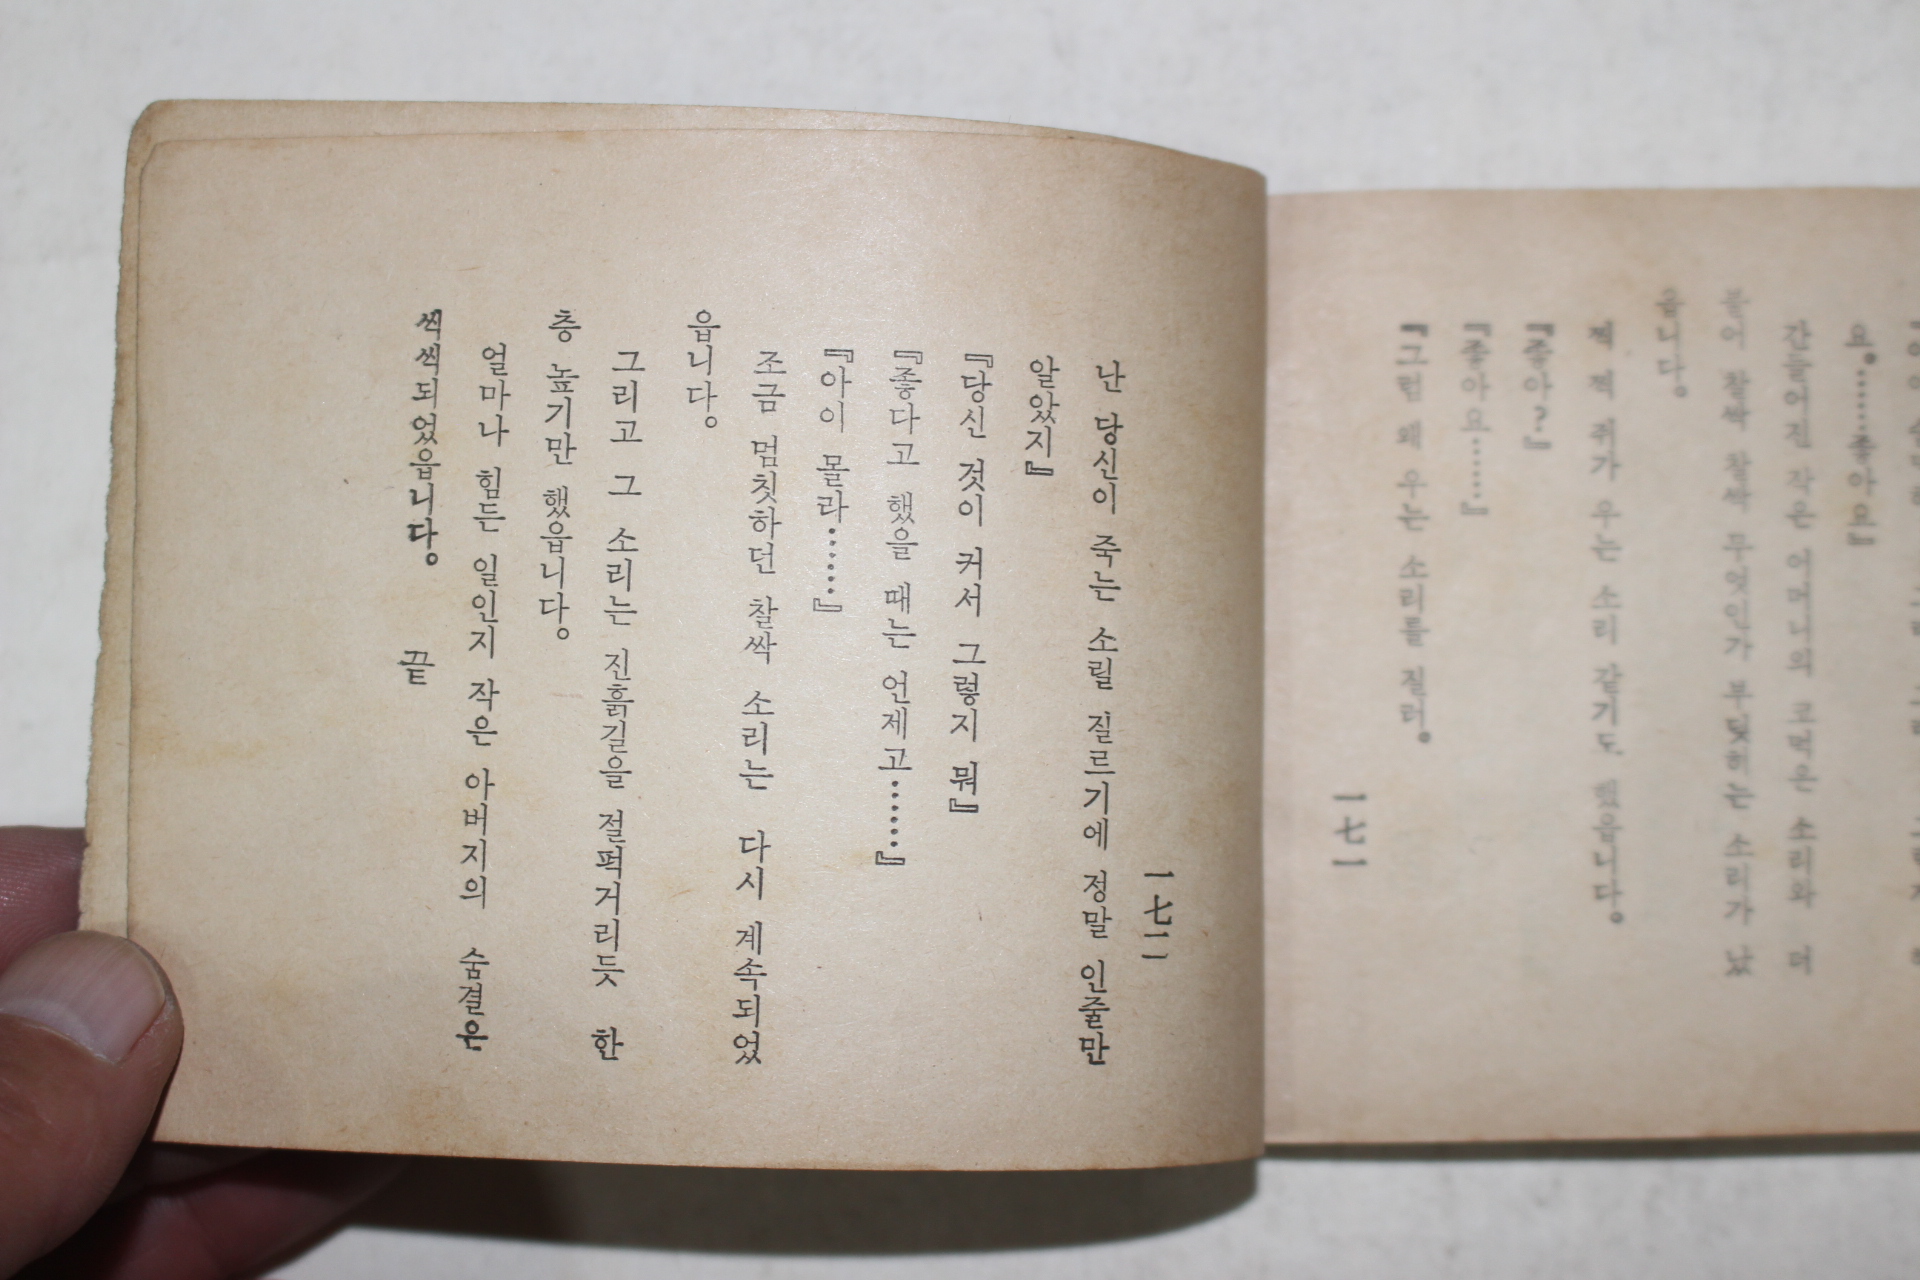 요。……좋아요』
간들어진 작은 어머니의 코먹은 소리와 더
불어 찰싹 찰싹 무엇인가 부딪히는 소리가 났
읍니다。
찍 찍 쥐가 우는 소리 같기도 했읍니다。
『좋아?』
『좋아요……』
『그럼 왜 우는 소리를 질러。
一七一
一七二
난 당신이 죽는 소릴 질르기에 정말 인줄만
알았지』
『당신 것이 커서 그렇지 뭐』
『좋다고 했을 때는 언제고……』
『아이 몰라……』
조금 멈칫하던 찰싹 소리는 다시 계속되었
읍니다。
그리고 그 소리는 진흙길을 절퍽거리듯 한
층 높기만 했읍니다。
얼마나 힘든 일인지 작은 아버지의 숨결은
씩씩되었읍니다。 끝